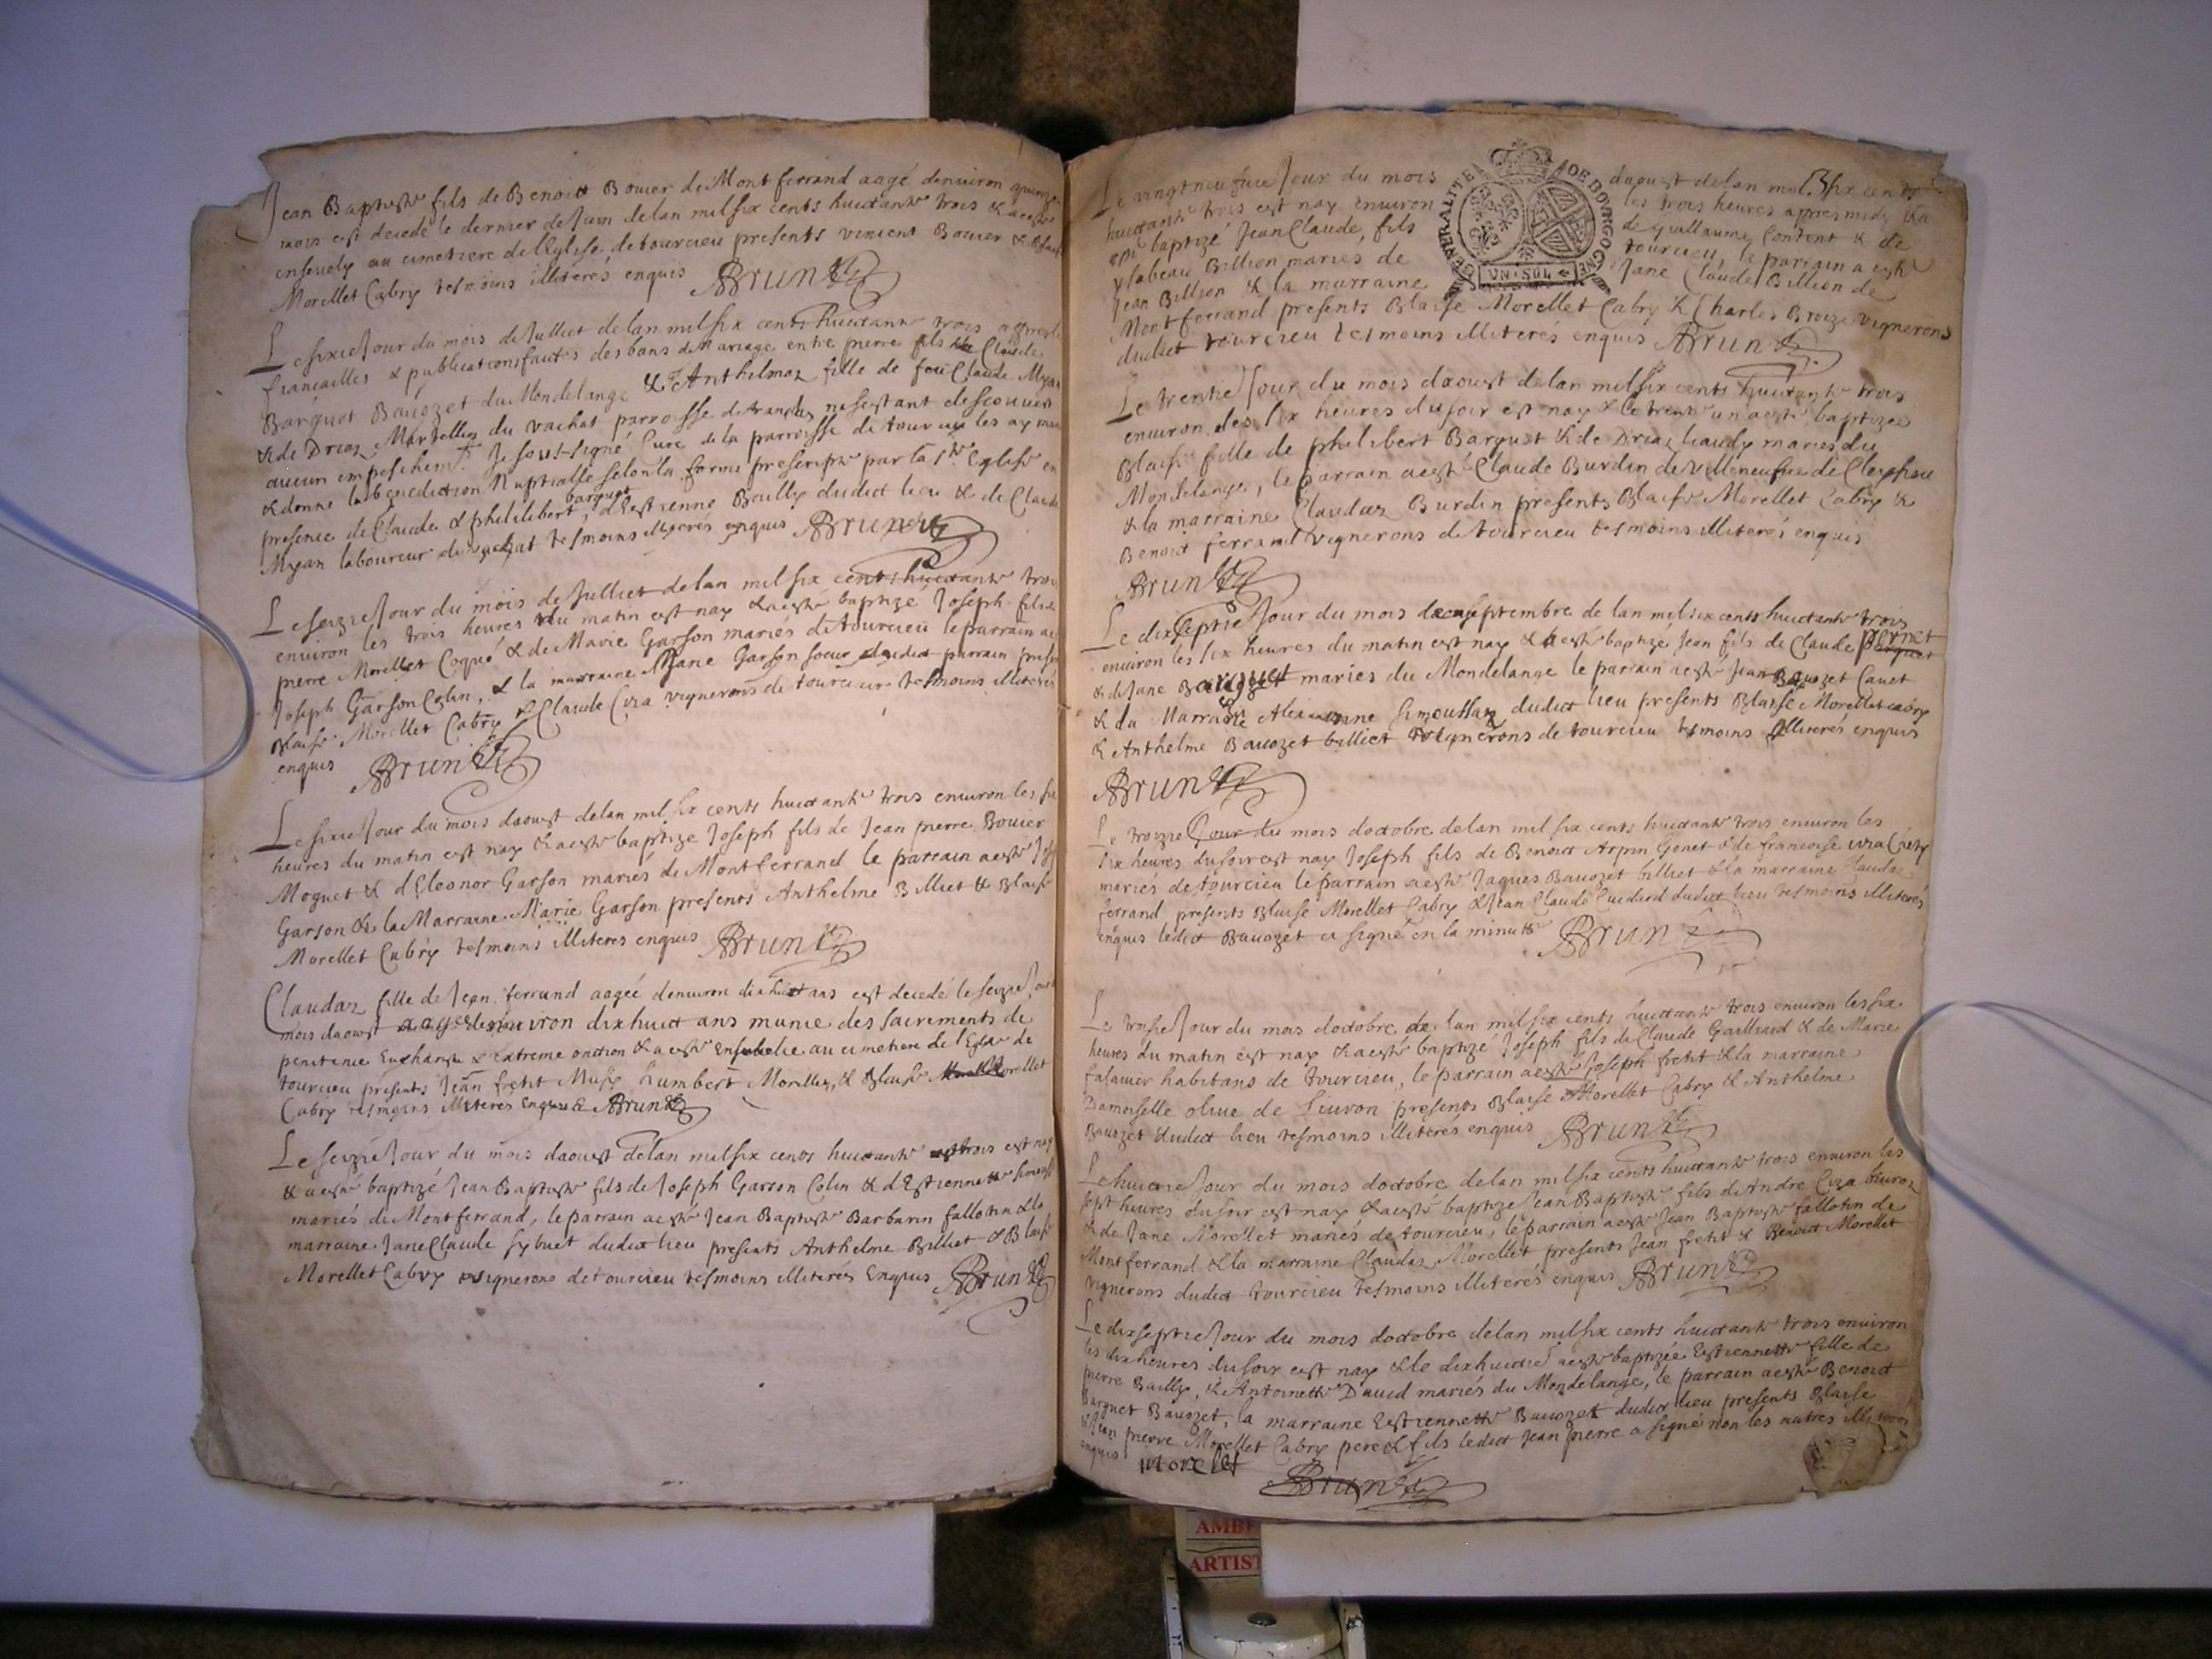 Jean Baptiste fils de Benoict Bouier de Montferrand aagé denuiron quinze
mois est decedé le dernier de Juin de lan mil six cents huictante trois & a esté
enseuely au cimetiere de l'Eglise de tourcieu presents vincent Bouier & Blaise
Morellet Cabry tesmoins illiterés enquis Brunet
Le sixie Jour du mois de Julliet de lan mil six cents huictante trois apprés les
fiancailles & publications faites des bans de Mariage entre pierre fils de Claude
Barquet Bauozet du Mondelange & Anthelmaz fille de feu Claude Myan
& de Driaz Martellin du vachat parroisse de ne sestant descouuert
aucun empeschemt. Je sous-signé Curé de la parroisse de tourcieu les ay mar
& donné la benediction Nuptialle selon la forme prescripte par la Ste Eglise en
presence de Claude & philibert barquet, d'Estienne Bailly dudict lieu & de Claude
Myan laboureur du vachat tesmoins illiterés enquis Brunet
Le seizie Jour du mois de Julliet de lan mil six cents huictante trois
enuiron les trois heures du matin est nay & a esté baptizé Joseph fils de
pierre Morellet Coqué & de Marie Garson mariés de tourcieu le parrain a
Joseph Garson Colin, & la marraine Jane Garson soeur dudict parrain presents
Blaise Morellet Cabry & Claude Ciza vignerons de tourcieu tesmoins illiterés
enquis Brunet
Le sixie Jour du mois daoust de lan mil six cents huictante trois enuiron les six
heures du matin est nay & a esté baptizé Joseph fils de Jean pierre Bouier
Moguet & d'Eleonor Garson mariés de Montferrand le parrain a esté
Garson & la Marraine Marie Garson presents Anthelme Billiet & Blaise
Morellet Cabry tesmoins illiterés enquis Brunet
Claudaz fille de Jean ferrand aagée denuiron dixhuict ans est decedé le seizie Jour
mois daoust aagée denuiron dixhuict ans munie des sacrements de
penitence Eucharistie & extreme onction & a esté Enseuelie au cimetiere de l'Eglise de
tourcieu presents Jean fretit Musy humbert Morellet, & Blaise Morellet
Cabry tesmoins illiterés Enquis Brunet
Le seizie Jour du mois daoust de lan mil six cents huictante trois est nay
& a esté baptizé Jean Baptiste fils de Joseph Garson Colin & d'Estiennette
mariés de Montferrand, le parrain a esté Jean Baptiste Barbarin fallotin & la
marraine Jane Claude sybuet dudict lieu presents Anthelme Billiet & Blaise
Morellet Cabry vignerons de tourcieu tesmoins illiterés Enquis Brunet
Le vingtneufuie Jour du mois daoust de lan mil six cents
huictante trois est nay enuiron les trois heures apprés midy & a
esté baptizé Jean Claude, fils de guillaume Content & de
ysabeau Billion mariés de tourcieu, le parrain a esté
Jean Billion & la marraine Jane Claude Billion de
Montferrand presents Blaise Morellet Cabry & Charles Broize vignerons
dudict tourcieu tesmoins illiterés enquis Brunet
GENERALITE DE BOVRGOGNE
VN·SOL
Le trentie Jour du mois daoust de lan mil six cents huictante trois
enuiron les six heures du soir est nay & le trente un a esté baptizée
Blaise fille de philibert Barquet & de Driaz liaudy mariés du
Mondelange, le parrain a esté Claude Burdin de villeneufue de
& la marraine Claudaz Burdin presents Blaise Morellet Cabry &
Benoict ferrand vignerons de tourcieu tesmoins illiterés enquis
Brunet
Le dixseptie Jour du mois de septembre de lan mil six cents huictante trois
enuiron les six heures du matin est nay & a esté baptizé Jean fils de Claude pernet
& de Jane Barquet mariés du Mondelange le parrain a esté Jean Bauozet Cauet
& du Marraine dudict lieu presents Blaise Morellet cabry
& Anthelme Bauozet billiet vignerons de tourcieu tesmoins illiterés enquis
Brunet
Le troizie Jour du mois doctobre de lan mil six cents huictante trois enuiron les
six heures du soir est nay Joseph fils de Benoict Arpin Gonet & de francoise
mariés de tourcieu le parrain a esté Jaques Bauozet billiet & la marraine Claudaz
ferrand presents Blaise Morellet Cabry & Jean Claude Cuidard dudict lieu tesmoins illiterés
enquis ledict Bauozet a signé en la minute Brunet
Le troisie Jour du mois doctobre de lan mil six cents huictante trois enuiron les six
heures du matin est nay & a esté baptizé Joseph fils de Claude Gailliard & de Marie
falauier habitans de tourcieu, le parrain a esté Joseph fretit & la marraine
Damoiselle oliue de Liuron presents Blaise Morellet Cabry & Anthelme
Bauozet dudict lieu tesmoins illiterés enquis Brunet
Le huictie Jour du mois doctobre de lan mil six cents huictante trois enuiron les
sept heures du soir est nay & a esté baptizé Jean Baptiste fils de Andre Ciza
& de Jane Morellet mariés de tourcieu, le parrain a esté Jean Baptiste fallotin de
Montferrand & la marraine Claudaz Morellet presents Jean fretit & Benoict Morellet
vignerons dudict tourcieu tesmoins illiterés enquis Brunet
Le dixseptie Jour du mois doctobre de lan mil six cents huictante trois enuiron
les dix heures du soir est nay & le dixhuictie a esté baptizée Estiennette fille de
pierre Bailly, & Antoinette Dauid mariés du Mondelange, le parrain a esté Benoict
Barquet Bauozet, la marraine Estiennette Bauozet dudict lieu presents Blaise
& Jean pierre Morellet Cabry pere & fils ledict Jean pierre a signé non les autres illiterés
enquis Morellet Brunet
AMBE
ARTIST